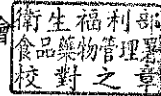 會
衛生福利部
食品藥物管理署
校對之章